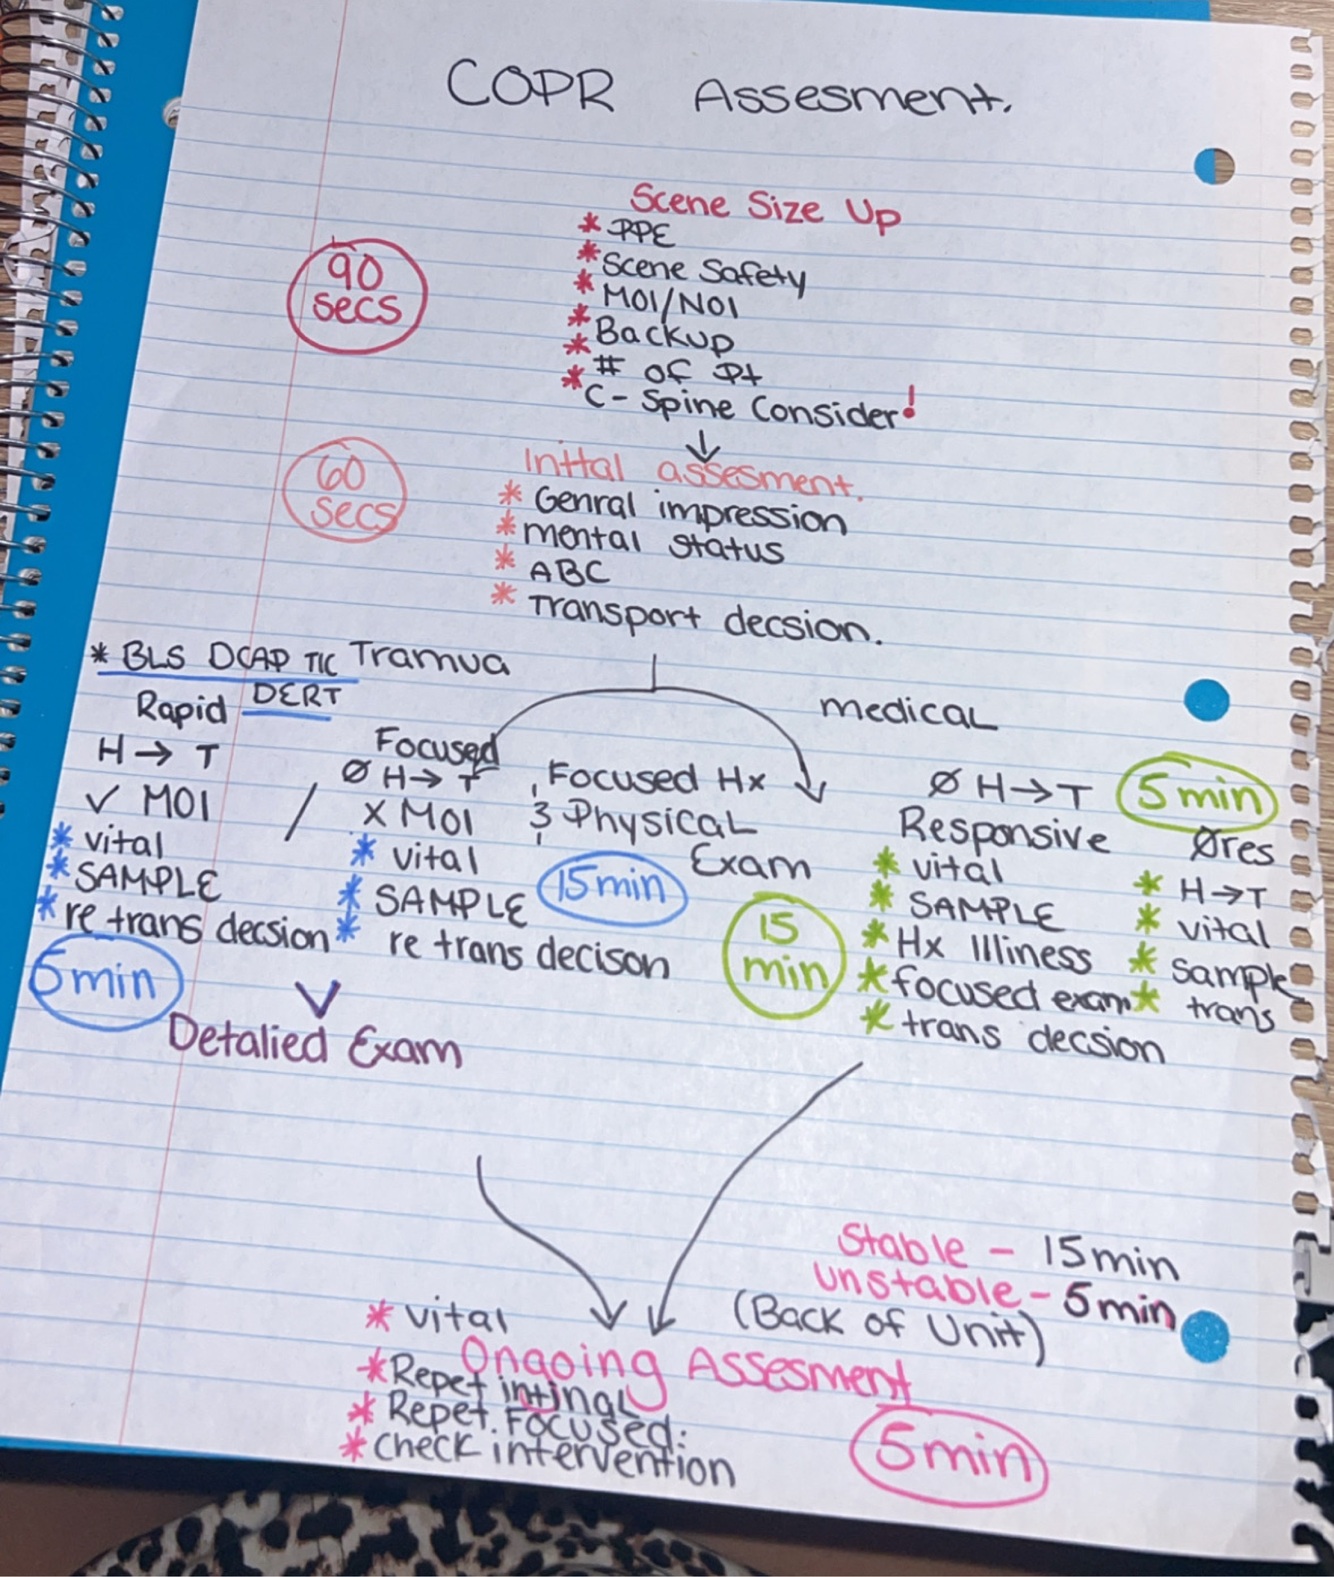 COPR Assesment.
Scene Size Up
* PPE
* Scene Safety
* MOI/NOI
* Backup
* # of Pt
* C-Spine Consider!
90
secs
↓
Inttal assesment.
* Genral impression
* mental status
* ABC
* Transport decsion.
60
secs
* BLS DCAP TIC Tramua
DERT
Rapid
H → T
✓ MOI
* vital
* SAMPLE
* re trans decsion
5min
/
Focused
Ø H → T
X MOI
* vital
* SAMPLE
* re trans decison
15min
V
Detalied Exam
Focused Hx
& Physical
Exam
medical
Ø H → T
Responsive
* vital
* SAMPLE
* Hx Illiness
* focused exam
* trans decsion
15
min
5min
Øres
* H → T
* vital
* sample
* trans
Stable - 15min
unstable - 5min
(Back of Unit)
* vital
Ongoing Assesment
* Repet intinal
* Repet. Focused.
* check intervention
5min